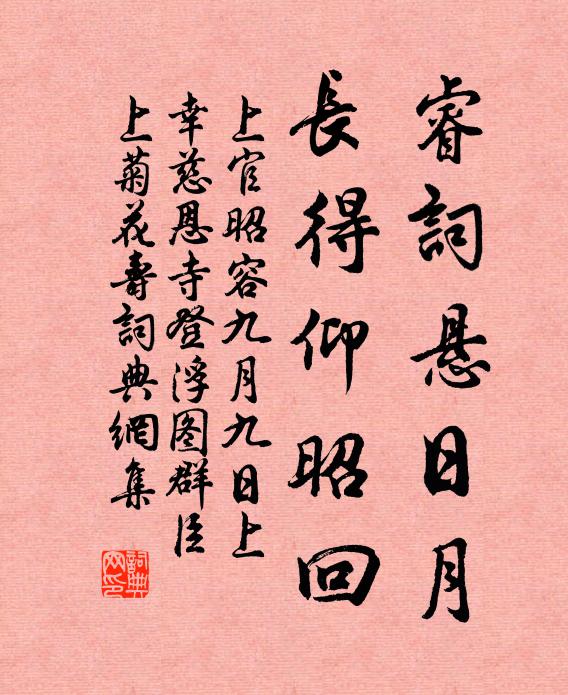 睿詞悬日月
長得仰昭回
上官昭容九月九日上
幸慈恩寺登浮图群臣
上菊花壽詞典網集
詞典网印